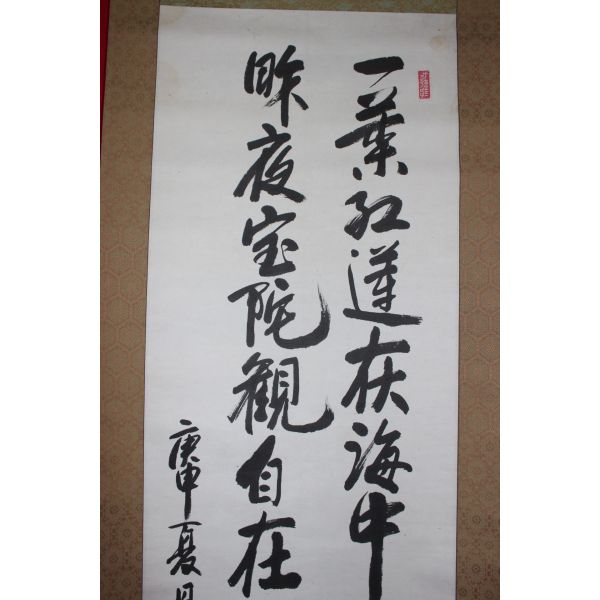 一葉紅蓮在海中
昨夜宝陀観自在
庚申夏